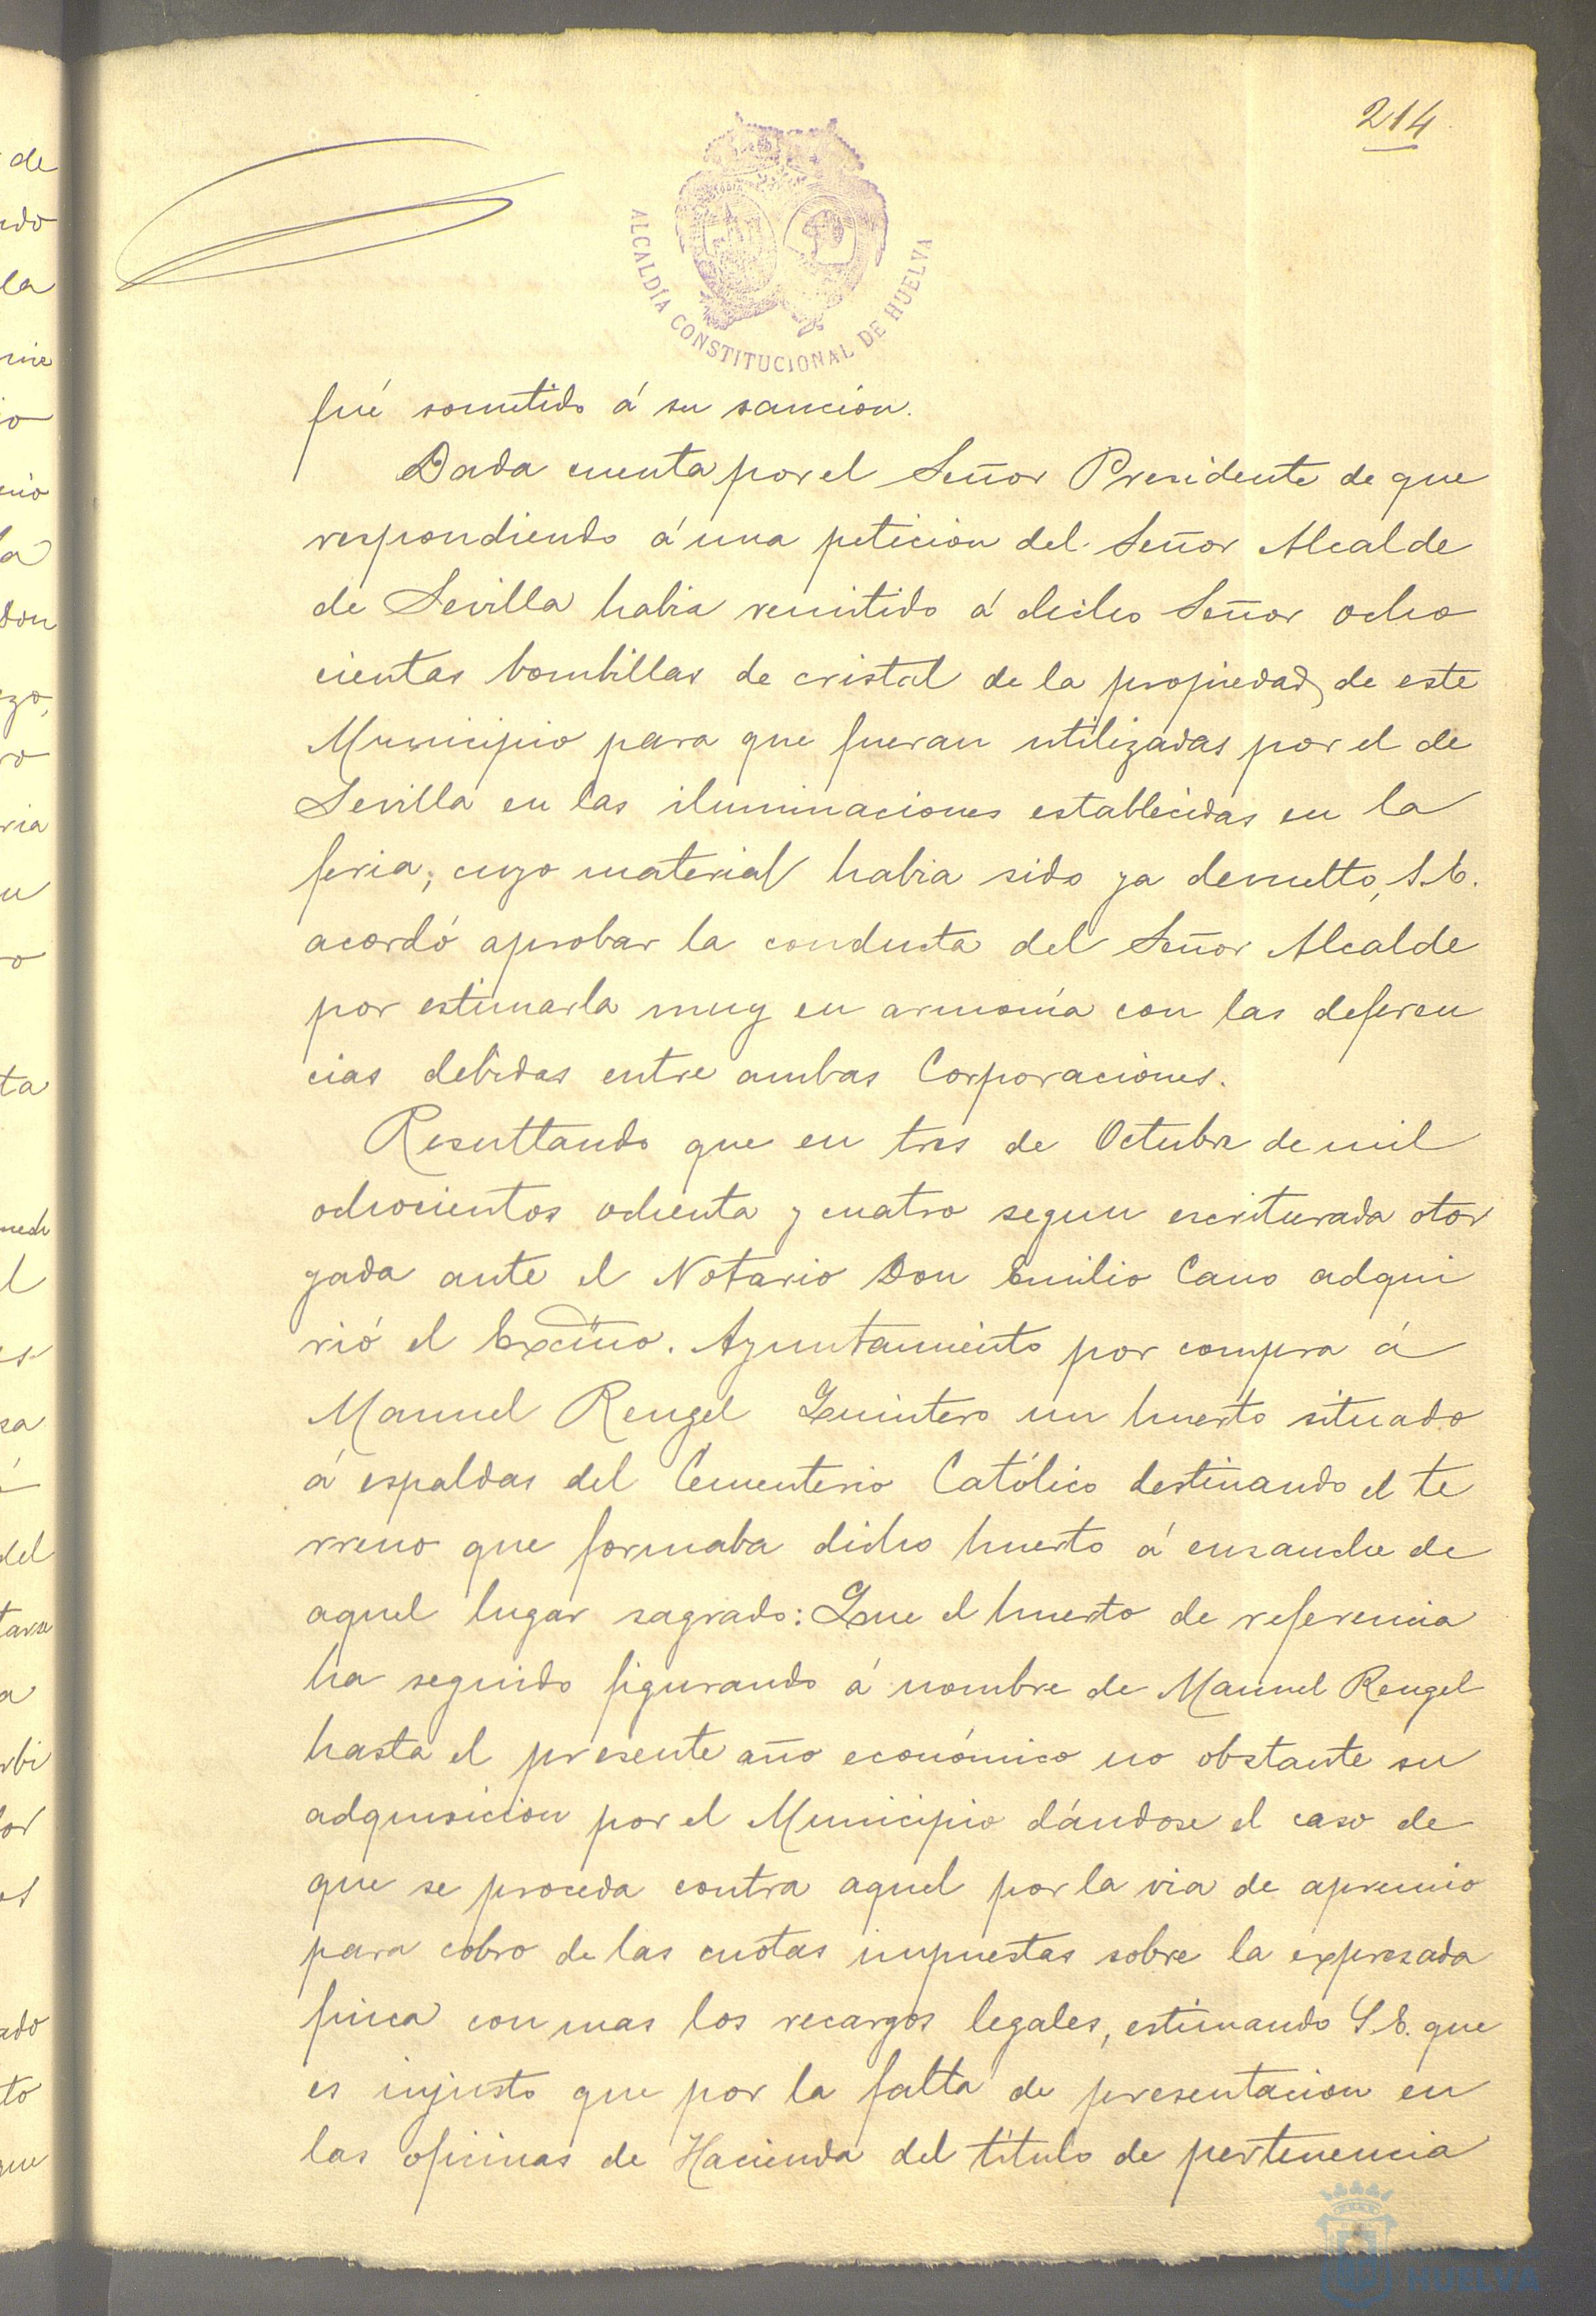 214
ALCALDÍA CONSTITUCIONAL DE HUELVA
fué sometido á su sancion.
Dada cuenta por el Señor Presidente de que
respondiendo á una peticion del Señor Alcalde
de Sevilla habia remitido á dicho Señor ocho
cientas bombillas de cristal de la propiedad de este
Municipio para que fueran utilizadas por el de
Sevilla en las iluminaciones establecidas en la
feria; cuyo material habia sido ya devuelto, S.E.
acordó aprobar la conducta del Señor Alcalde
por estimarla muy en armonía con las deferen
cias debidas entre ambas Corporaciones.
Resultando que en tres de Octubre de mil
ochocientos ochenta y cuatro segun escriturada otor
gada ante el Notario Don Emilio Cano adqui
rió el Excmo. Ayuntamiento por compra á
Manuel Rengel Quintero un huerto situado
á espaldas del Cementerio Católico destinando el te
rreno que formaba dicho huerto á ensanche de
aquel lugar sagrado: Que el huerto de referencia
ha seguido figurando á nombre de Manuel Rengel
hasta el presente año económico no obstante su
adquisicion por el Municipio dándose el caso de
que se proceda contra aquel por la via de apremio
para cobro de las cuotas impuestas sobre la expresada
finca con mas los recargos legales, estimando S.E. que
es injusto que por la falta de presentacion en
las oficinas de Hacienda del título de pertenencia
HUELVA